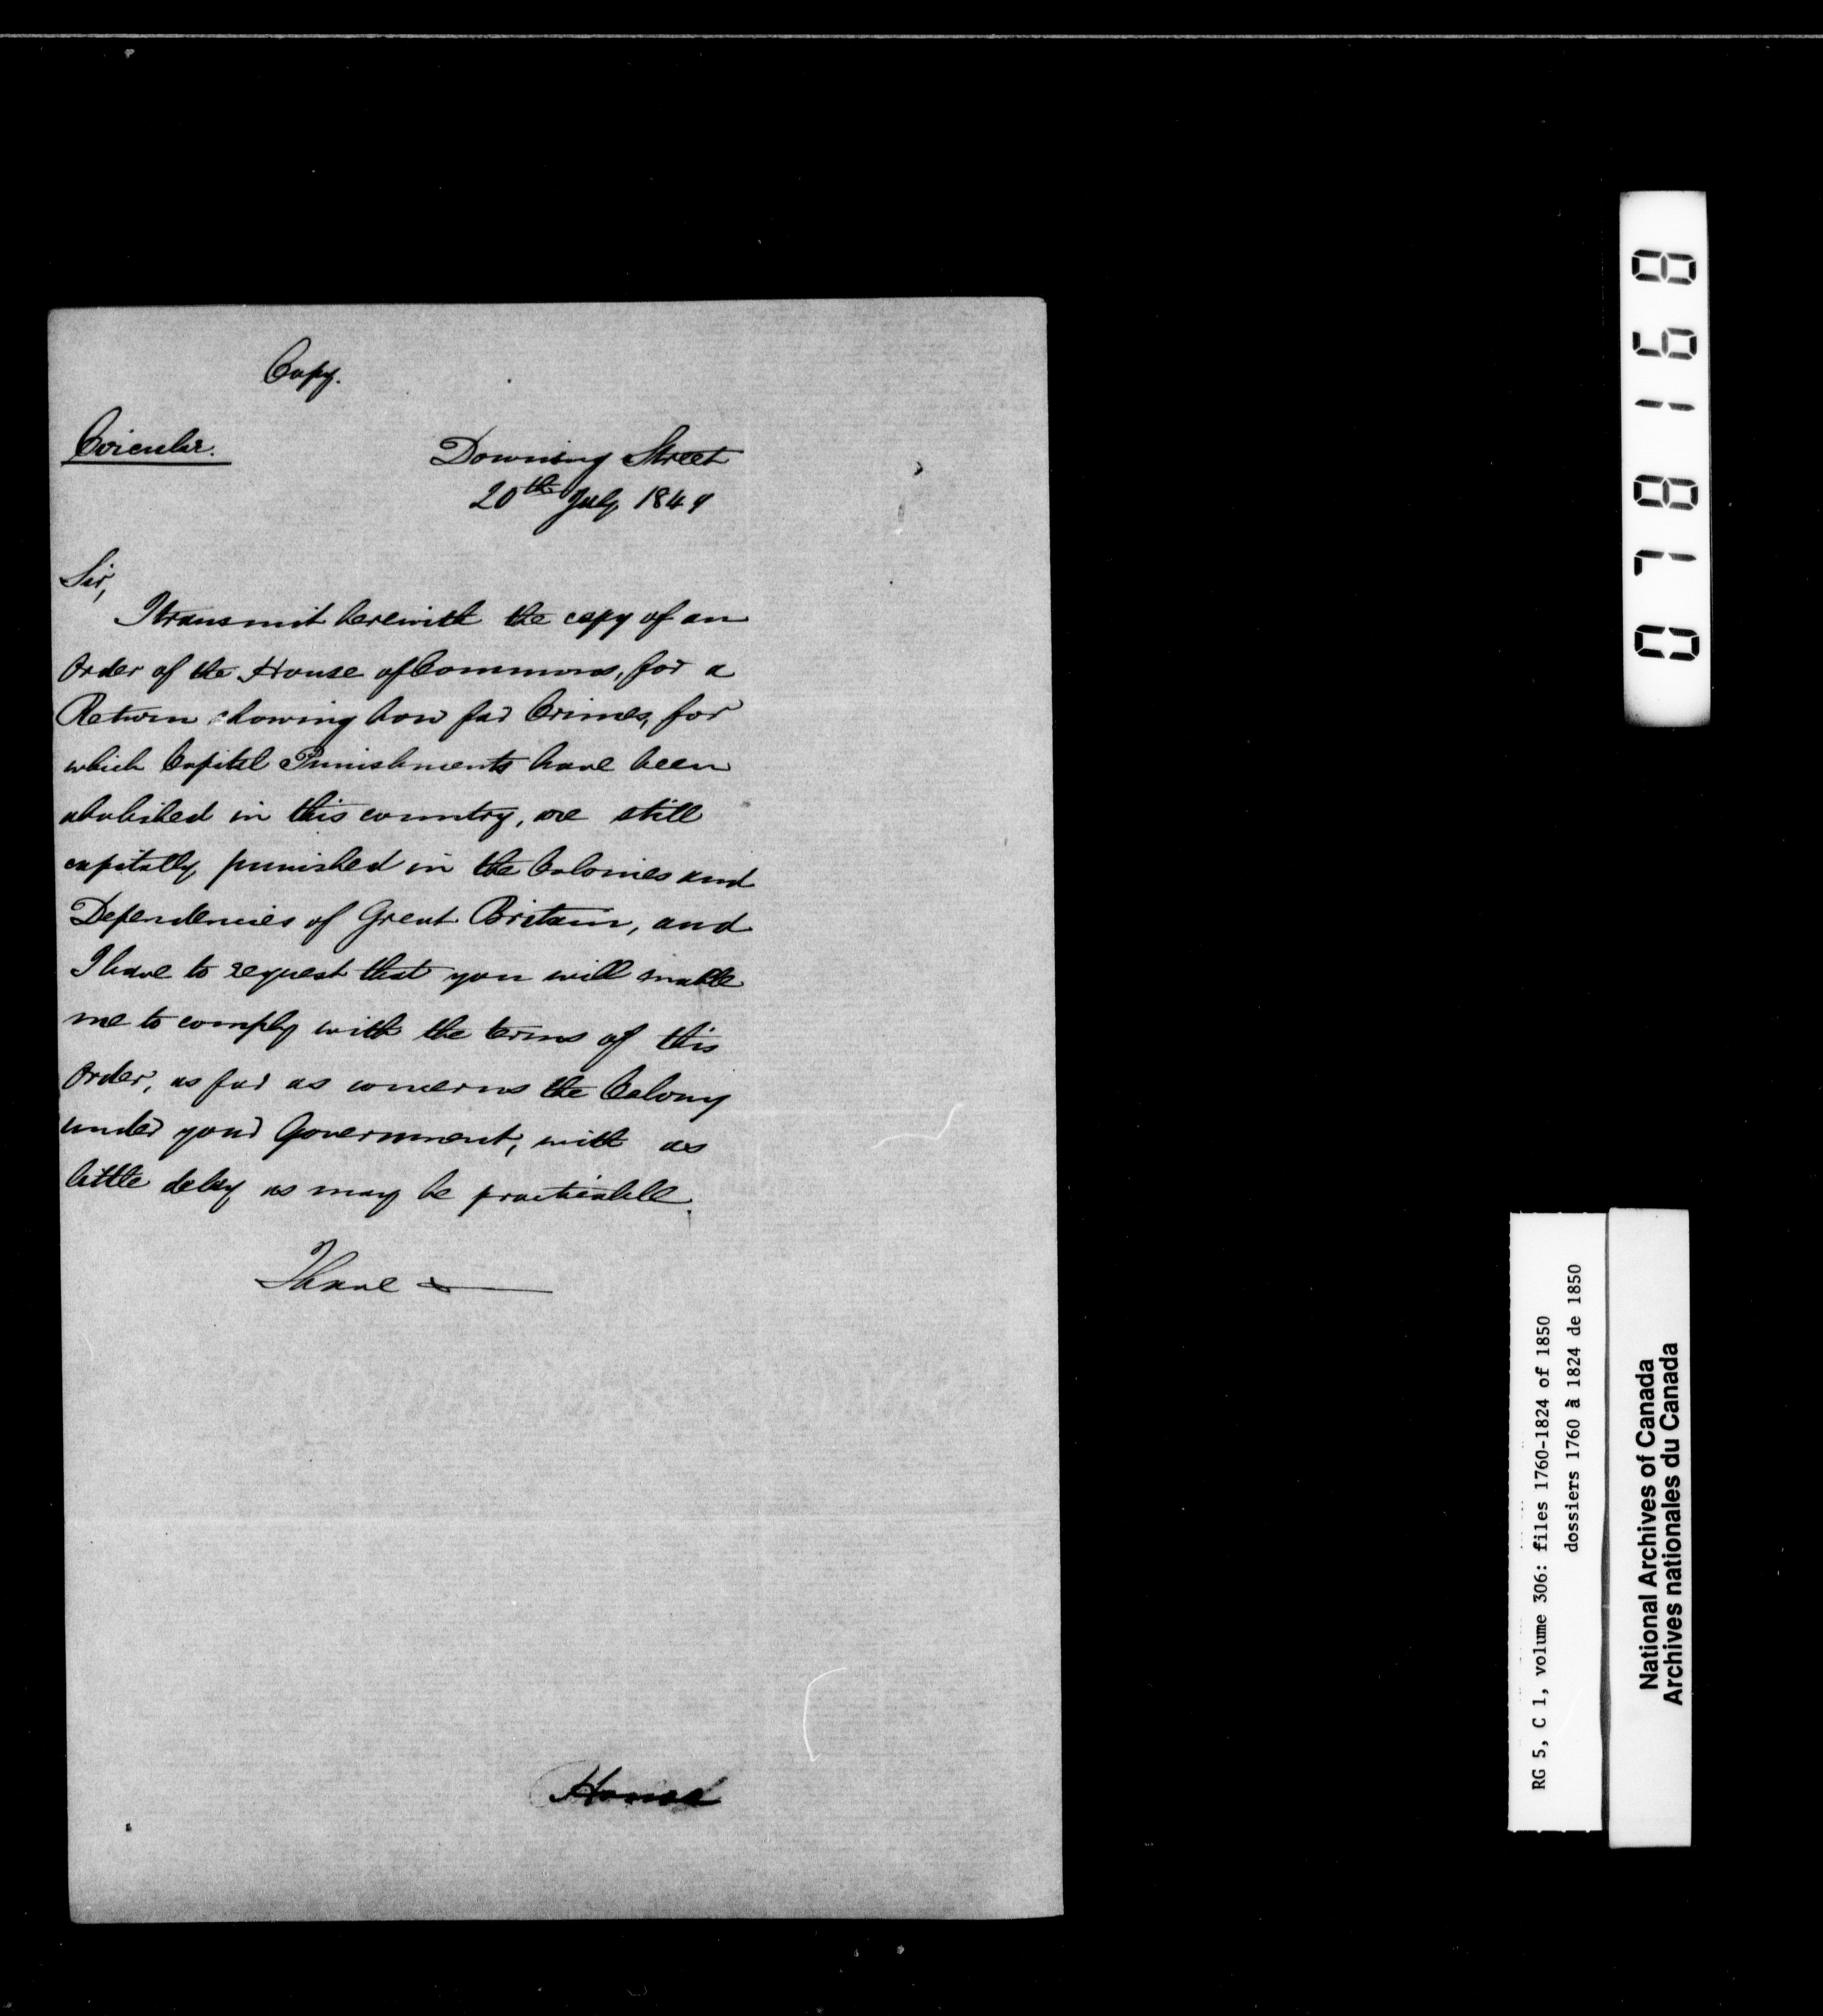 Copy.
Circular.
Downing Street
20th July 1849
Sir,
I transmit herewith the copy of an
Order of the House of Commons, for a
Return showing how far Crimes, for
which Capital Punishments have been
abolished in this country, are still
capitally punished in the Colonies and
Dependencies of Great Britain, and
I have to request that you will enable
me to comply with the terms of this
Order, as far as concerns the Colony
under your Government, with as
little delay as may be practicable.
I have &
078168
RG 5, C 1, volume 306: files 1760-1824 of 1850
dossiers 1760 à 1824 de 1850
National Archives of Canada
Archives nationales du Canada